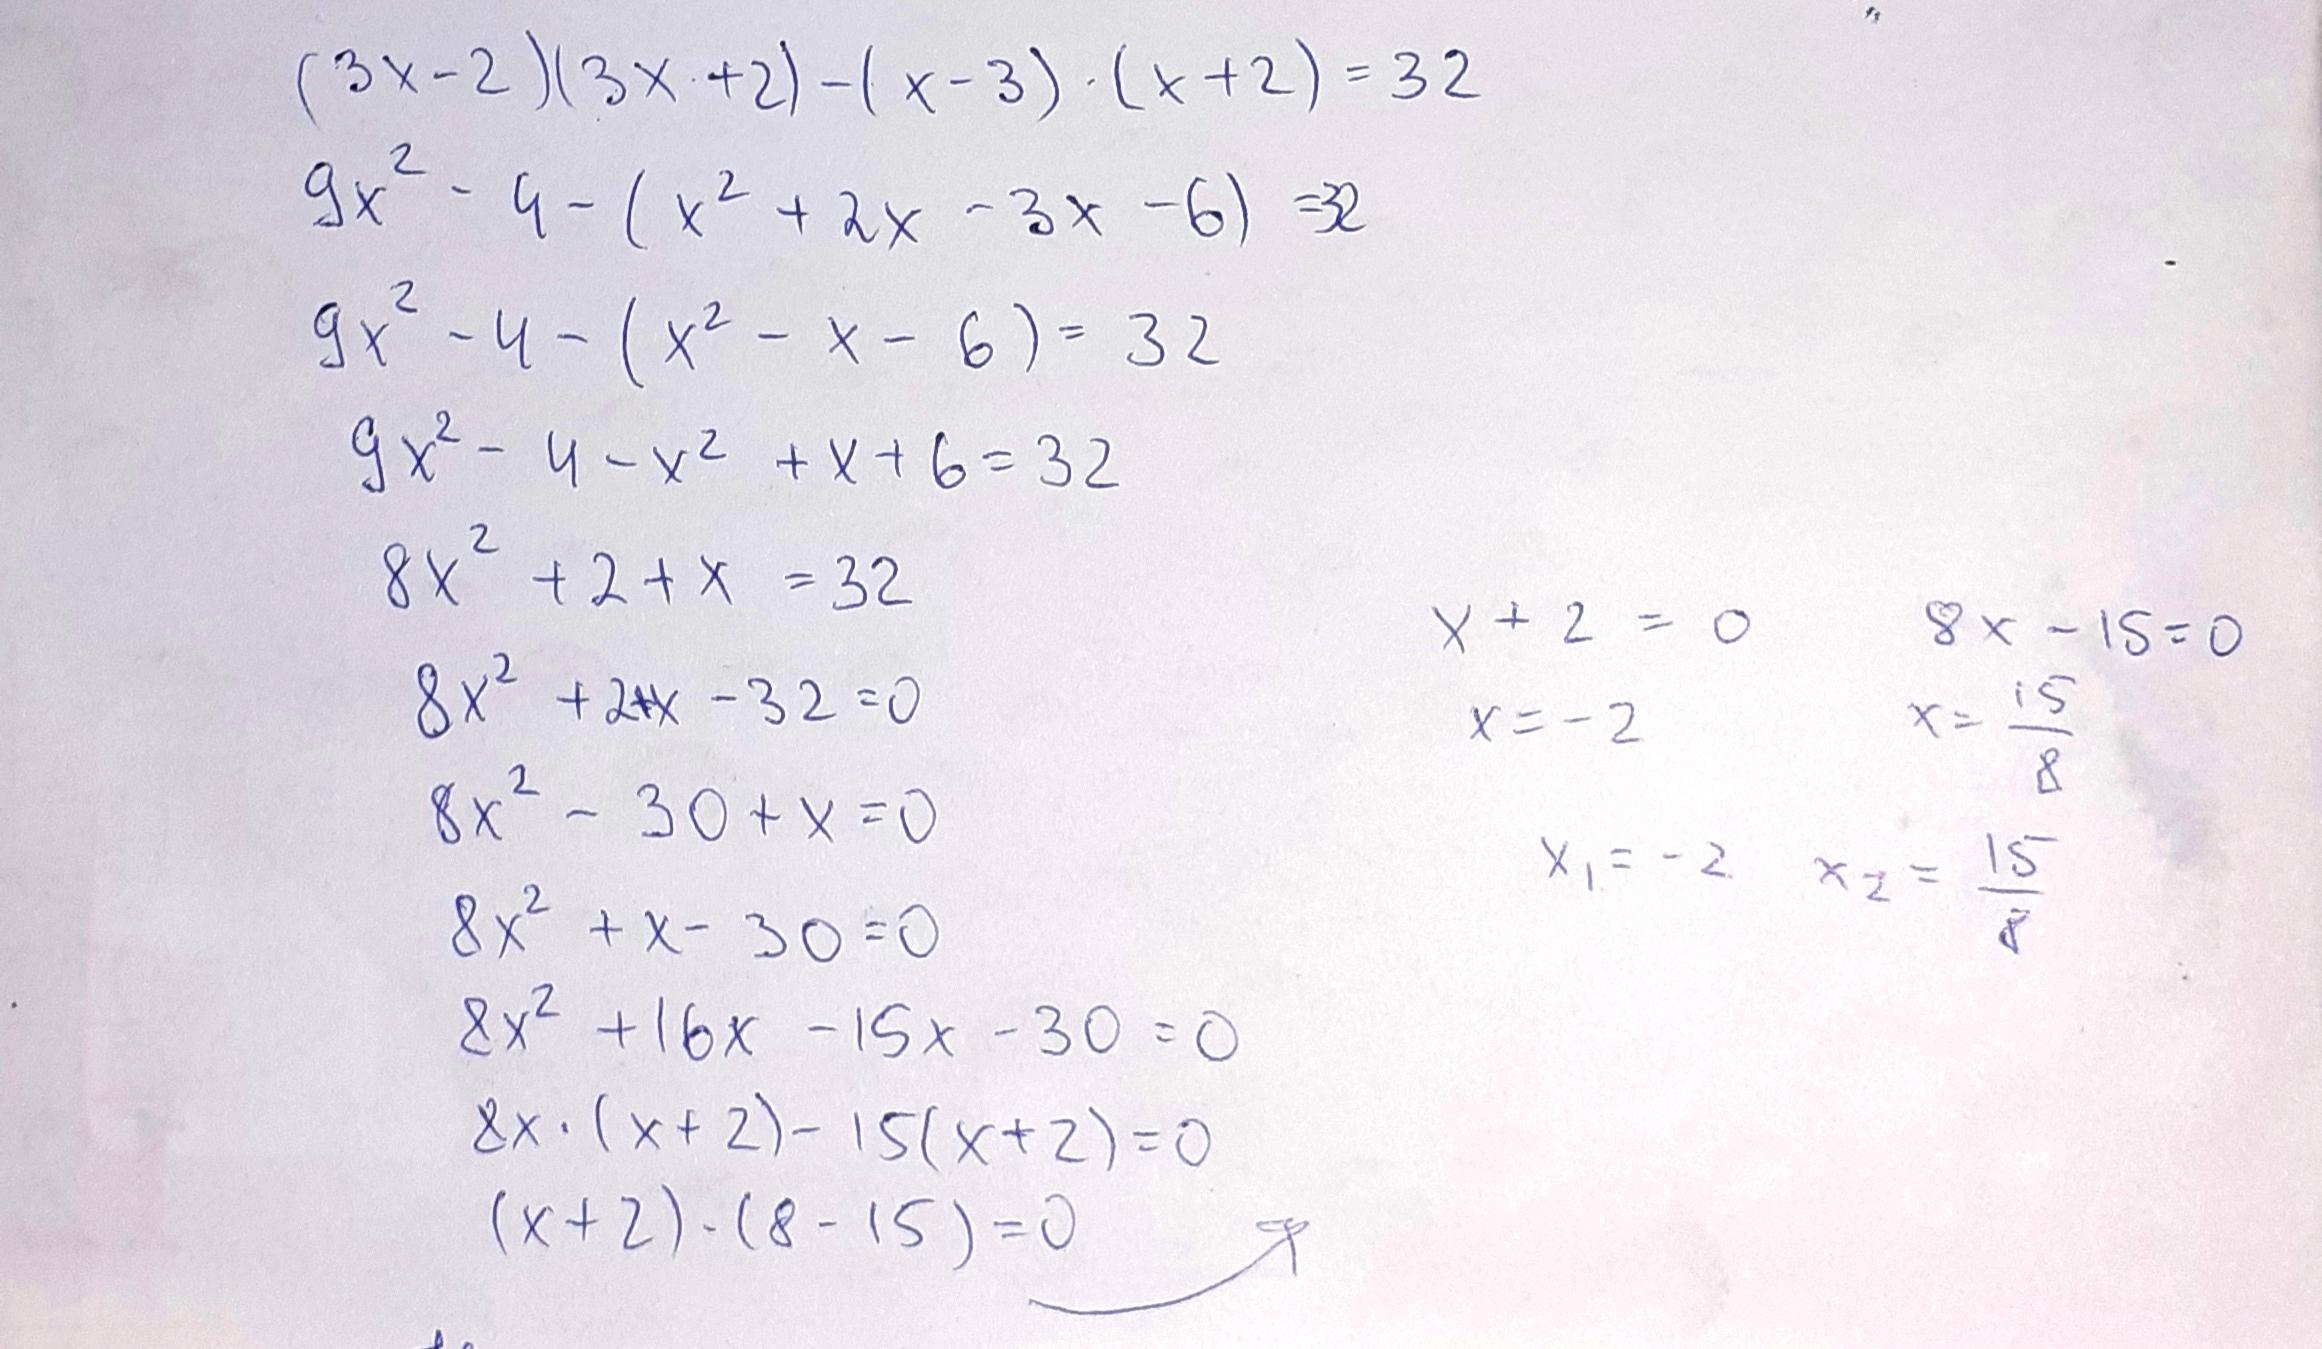 (3x-2)(3x+2)-(x-3)·(x+2)=32
9x²-4-(x²+2x-3x-6)=32
9x²-4-(x²-x-6)=32
9x²-4-x²+x+6=32
8x²+2+x=32
8x²+2+x-32=0
8x²-30+x=0
8x²+x-30=0
8x²+16x-15x-30=0
8x·(x+2)-15(x+2)=0
(x+2)·(8-15)=0
x+2=0 8x-15=0
x=-2 x=15/8
x₁=-2 x₂=15/8